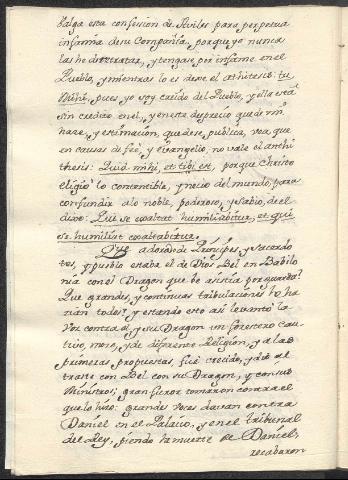 Valga esta confession de Aviles para perpetua
infamia de su Compañia, porque yo nunca
las he de retratar, y tengase por infame en el
Pueblo, y mientras lo es dese el athitesis: tu
Mihi, pues yo soy creido del Pueblo, y ella está
sin credito en el, y en este desprecio que de mi
haze, y estimacion, que dese publica, vea, que
en causas de feè, y Evangelio, no vale el anthi
thesis: Quid mihi, et tibi est, porque Christo
eligiò lo contemtible, y necio del mundo, para
confundir a lo noble, poderoso, y sabio, de el
dixo: Qui se exaltat humiliabitur, et qui
se humiliat exaltabitur.
Que adorado de Principes, y sacerdo
tes, y pueblo estaba el de Dios Bel en Babilo
nia con el Dragon que le asistia por guarda?
Que grandes, y continuas tribulaciones le ha
zian todos? y estando esto asi levantò la
Voz contra el, y su Dragon un forastero cau
tivo, mozo, y de diferente Religion, y a las
primeras propuestas, fuè creido, y diò al
traste con Bel con su Dragon, y con sus
Ministros; gran furor tomaron contra el
que lo hizo: grandes vozes davan contra
Daniel en el Palacio, y en el tribunal
del Rey, pidiendo la muerte de Daniel,
recabaron